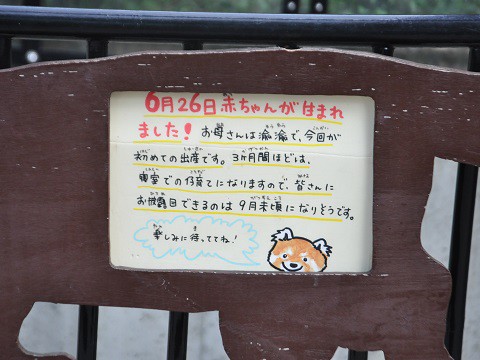 6月26日赤ちゃんが生まれ
ました！ お母さんは渝渝で、今回が
初めての出産です。3ヵ月間ほどは、
寝室での仔育てになりますので、皆さんに
お披露目できるのは 9月末頃になりそうです。
楽しみに待っててね！